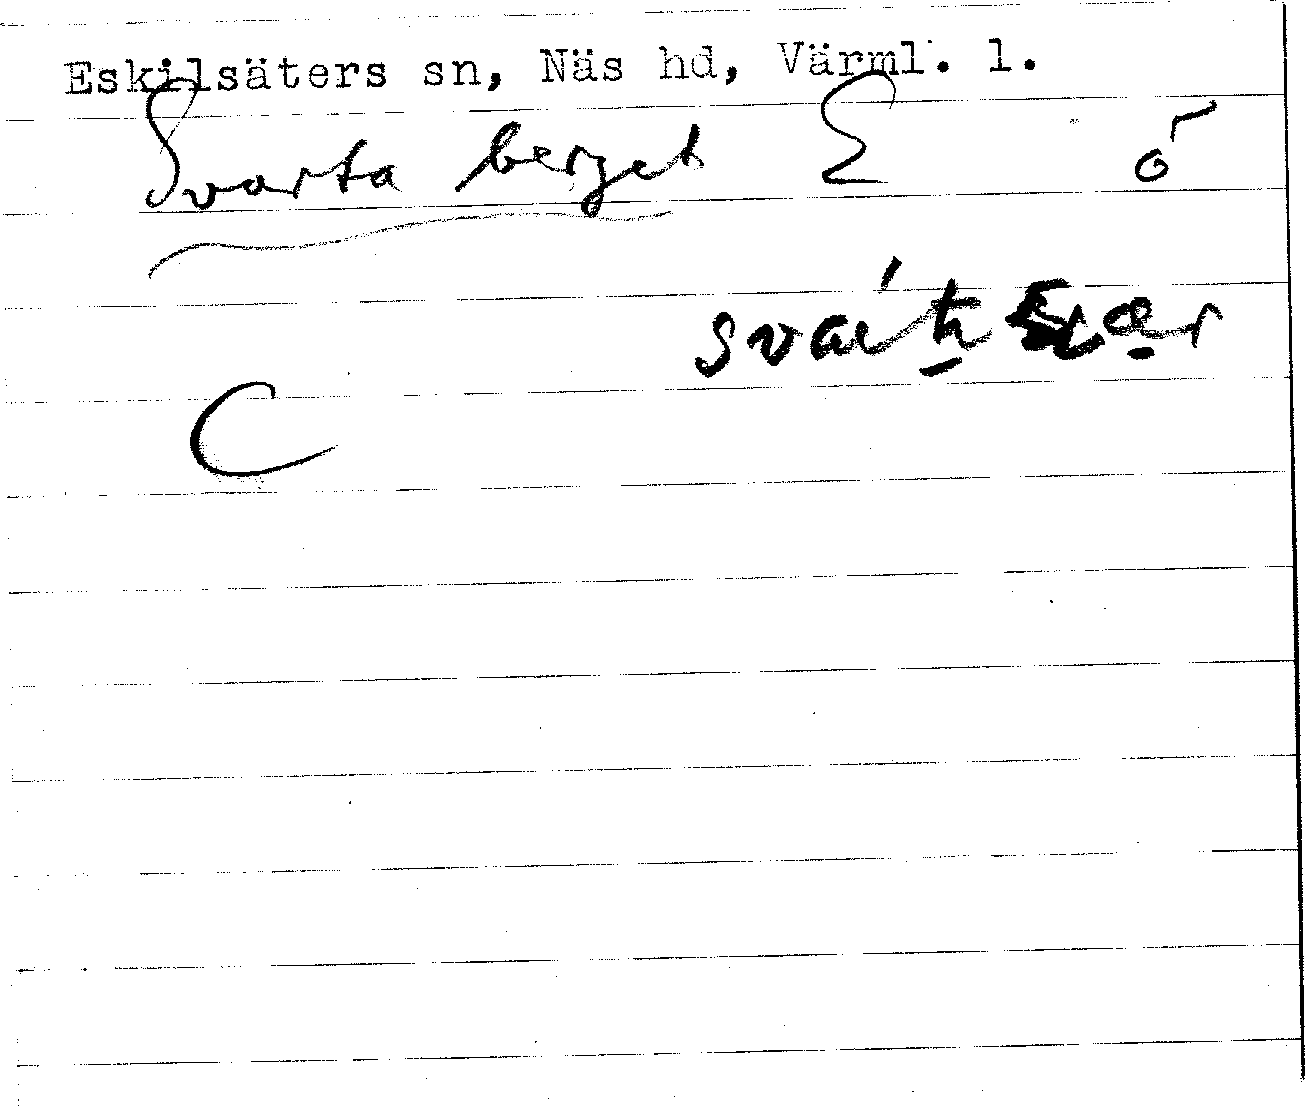 Eskilsäters sn, Näs hd, Värml. l.
Svarta berget Σ
C